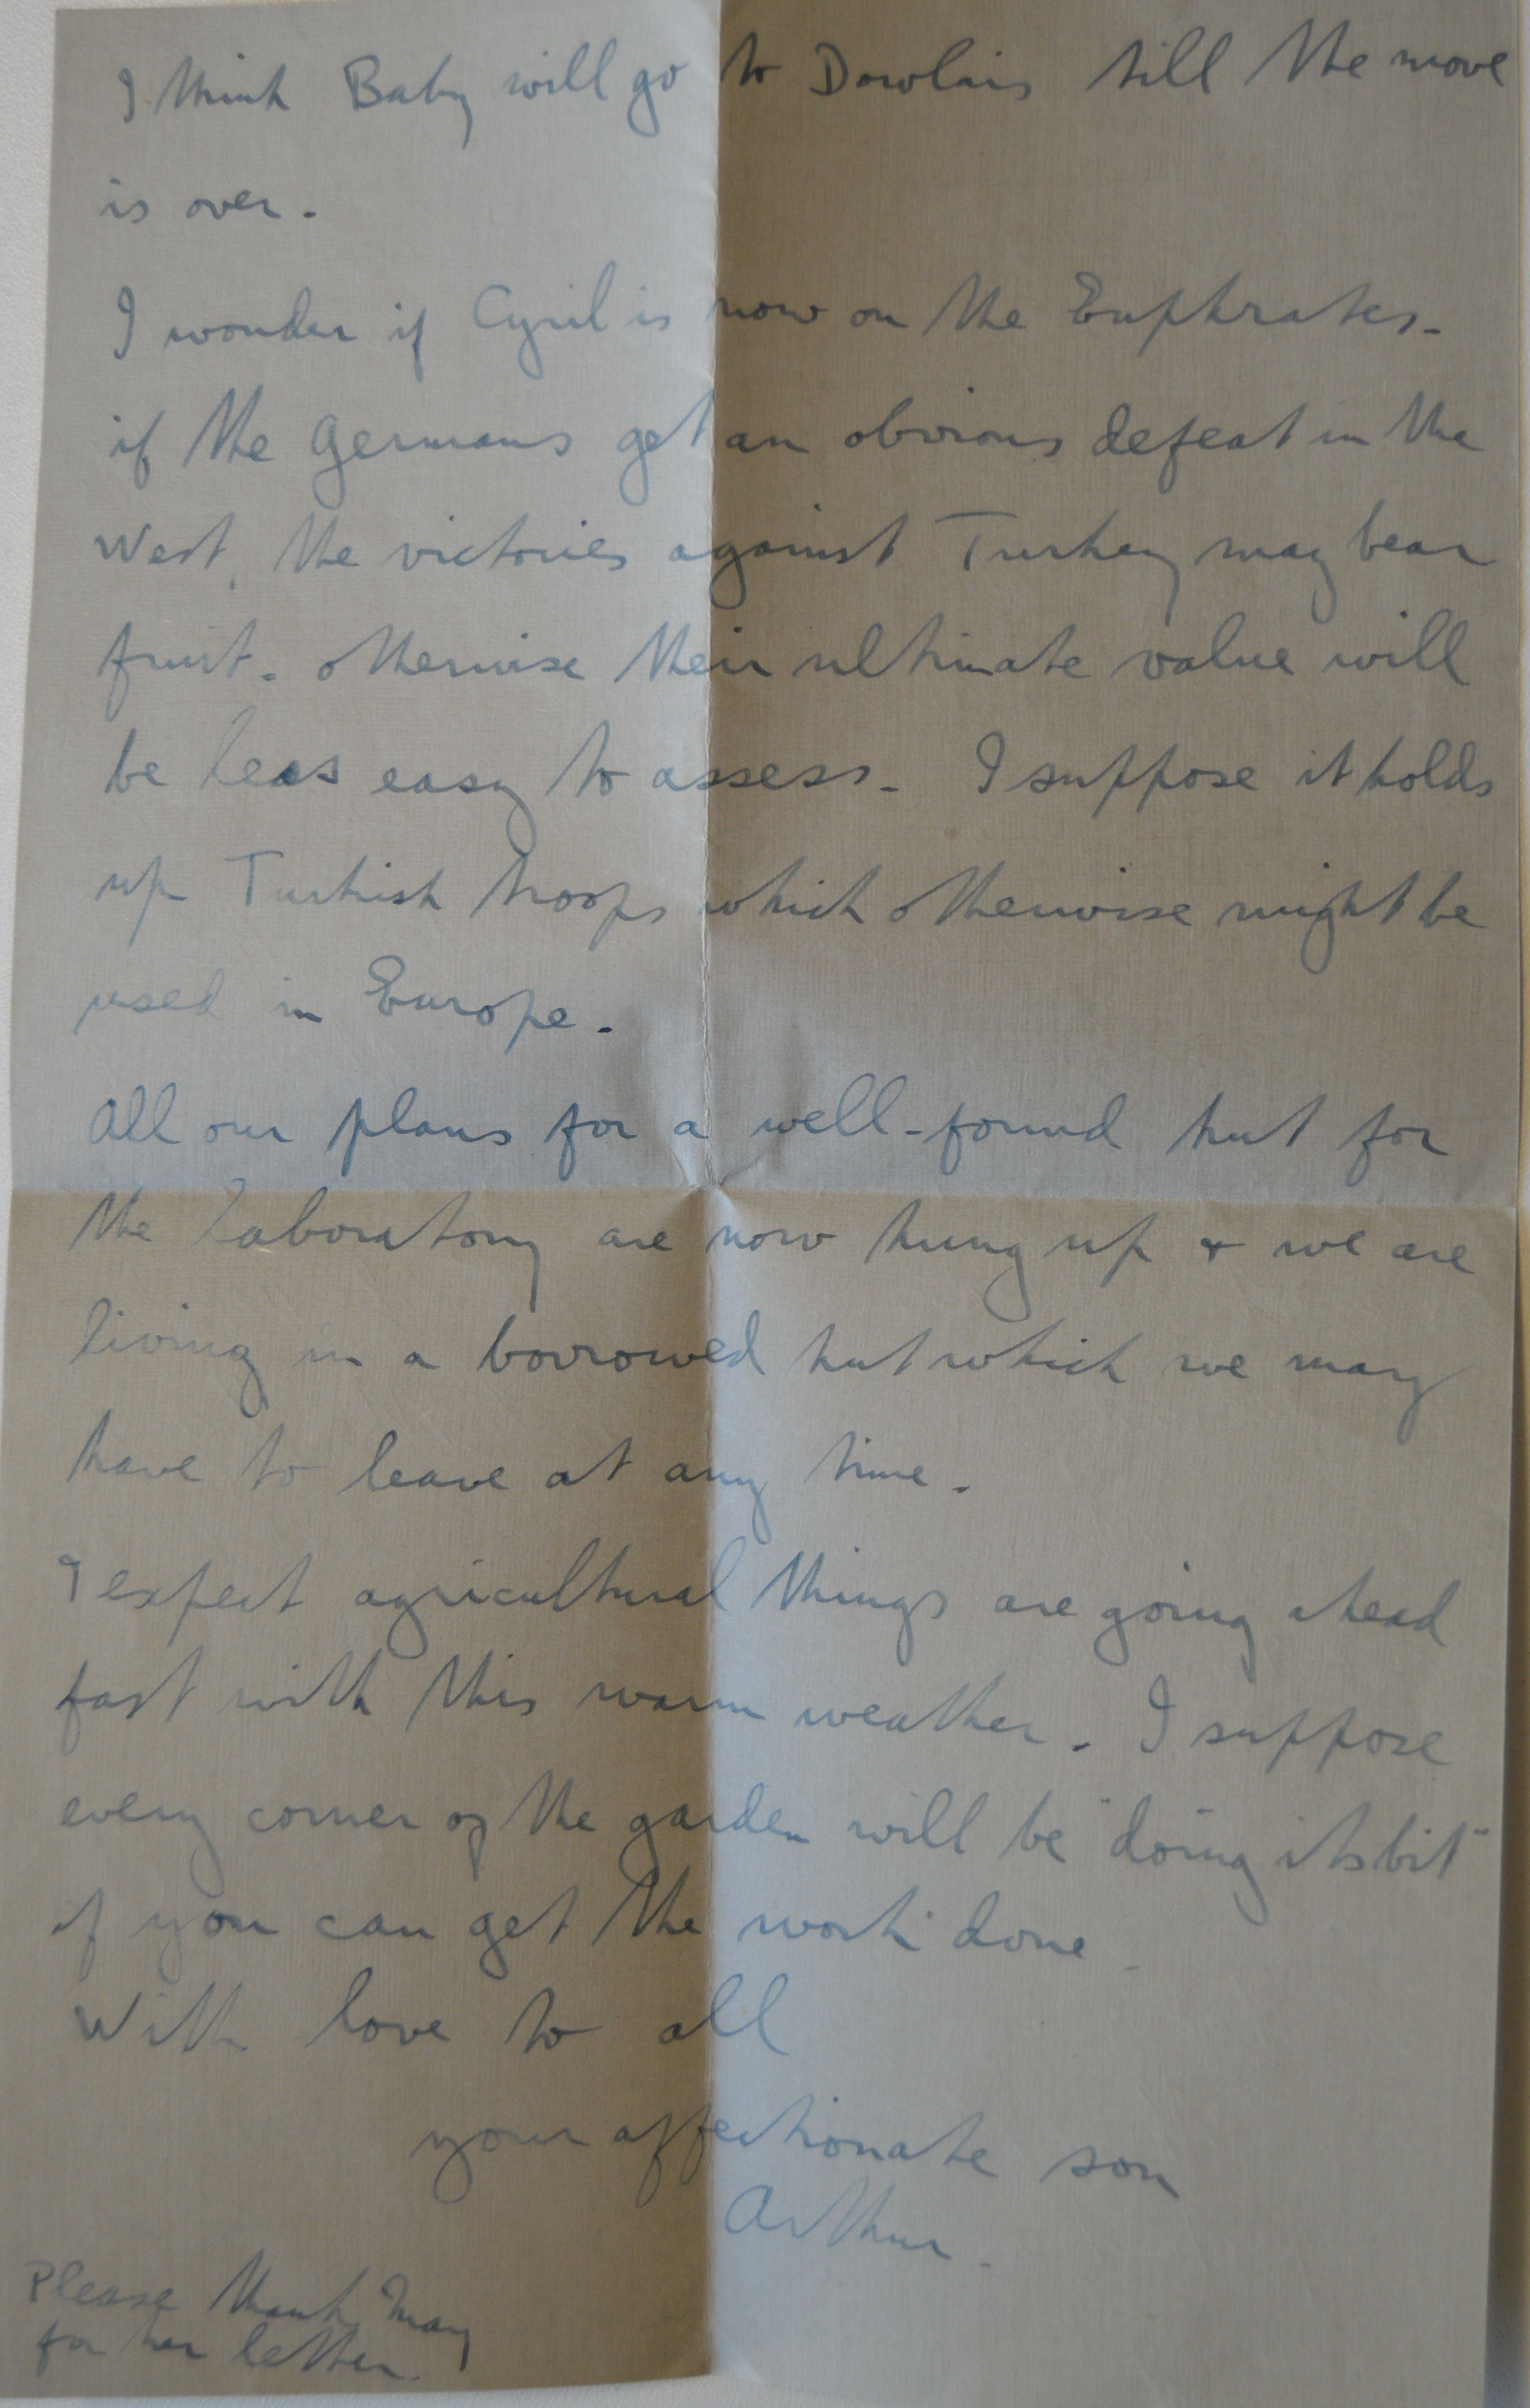 I think Baby will go to Dowlais till the move
is over.
I wonder if Cyril is now on the Euphrates.
if the Germans get an obvious defeat in the
West, the victories against Turkey may bear
fruit. otherwise their ultimate value will
be less easy to assess. I suppose it holds
up Turkish troops which otherwise might be
used in Europe.
All our plans for a well-found hut for
the laboratory are now hung up & we are
living in a borrowed hut which we may
have to leave at any time.
I expect agricultural things are going ahead
fast with this warm weather. I suppose
every corner of the garden will be "doing its bit"
if you can get the work done.
With love to all
your affectionate son
Arthur.
Please thank May
for her letter.